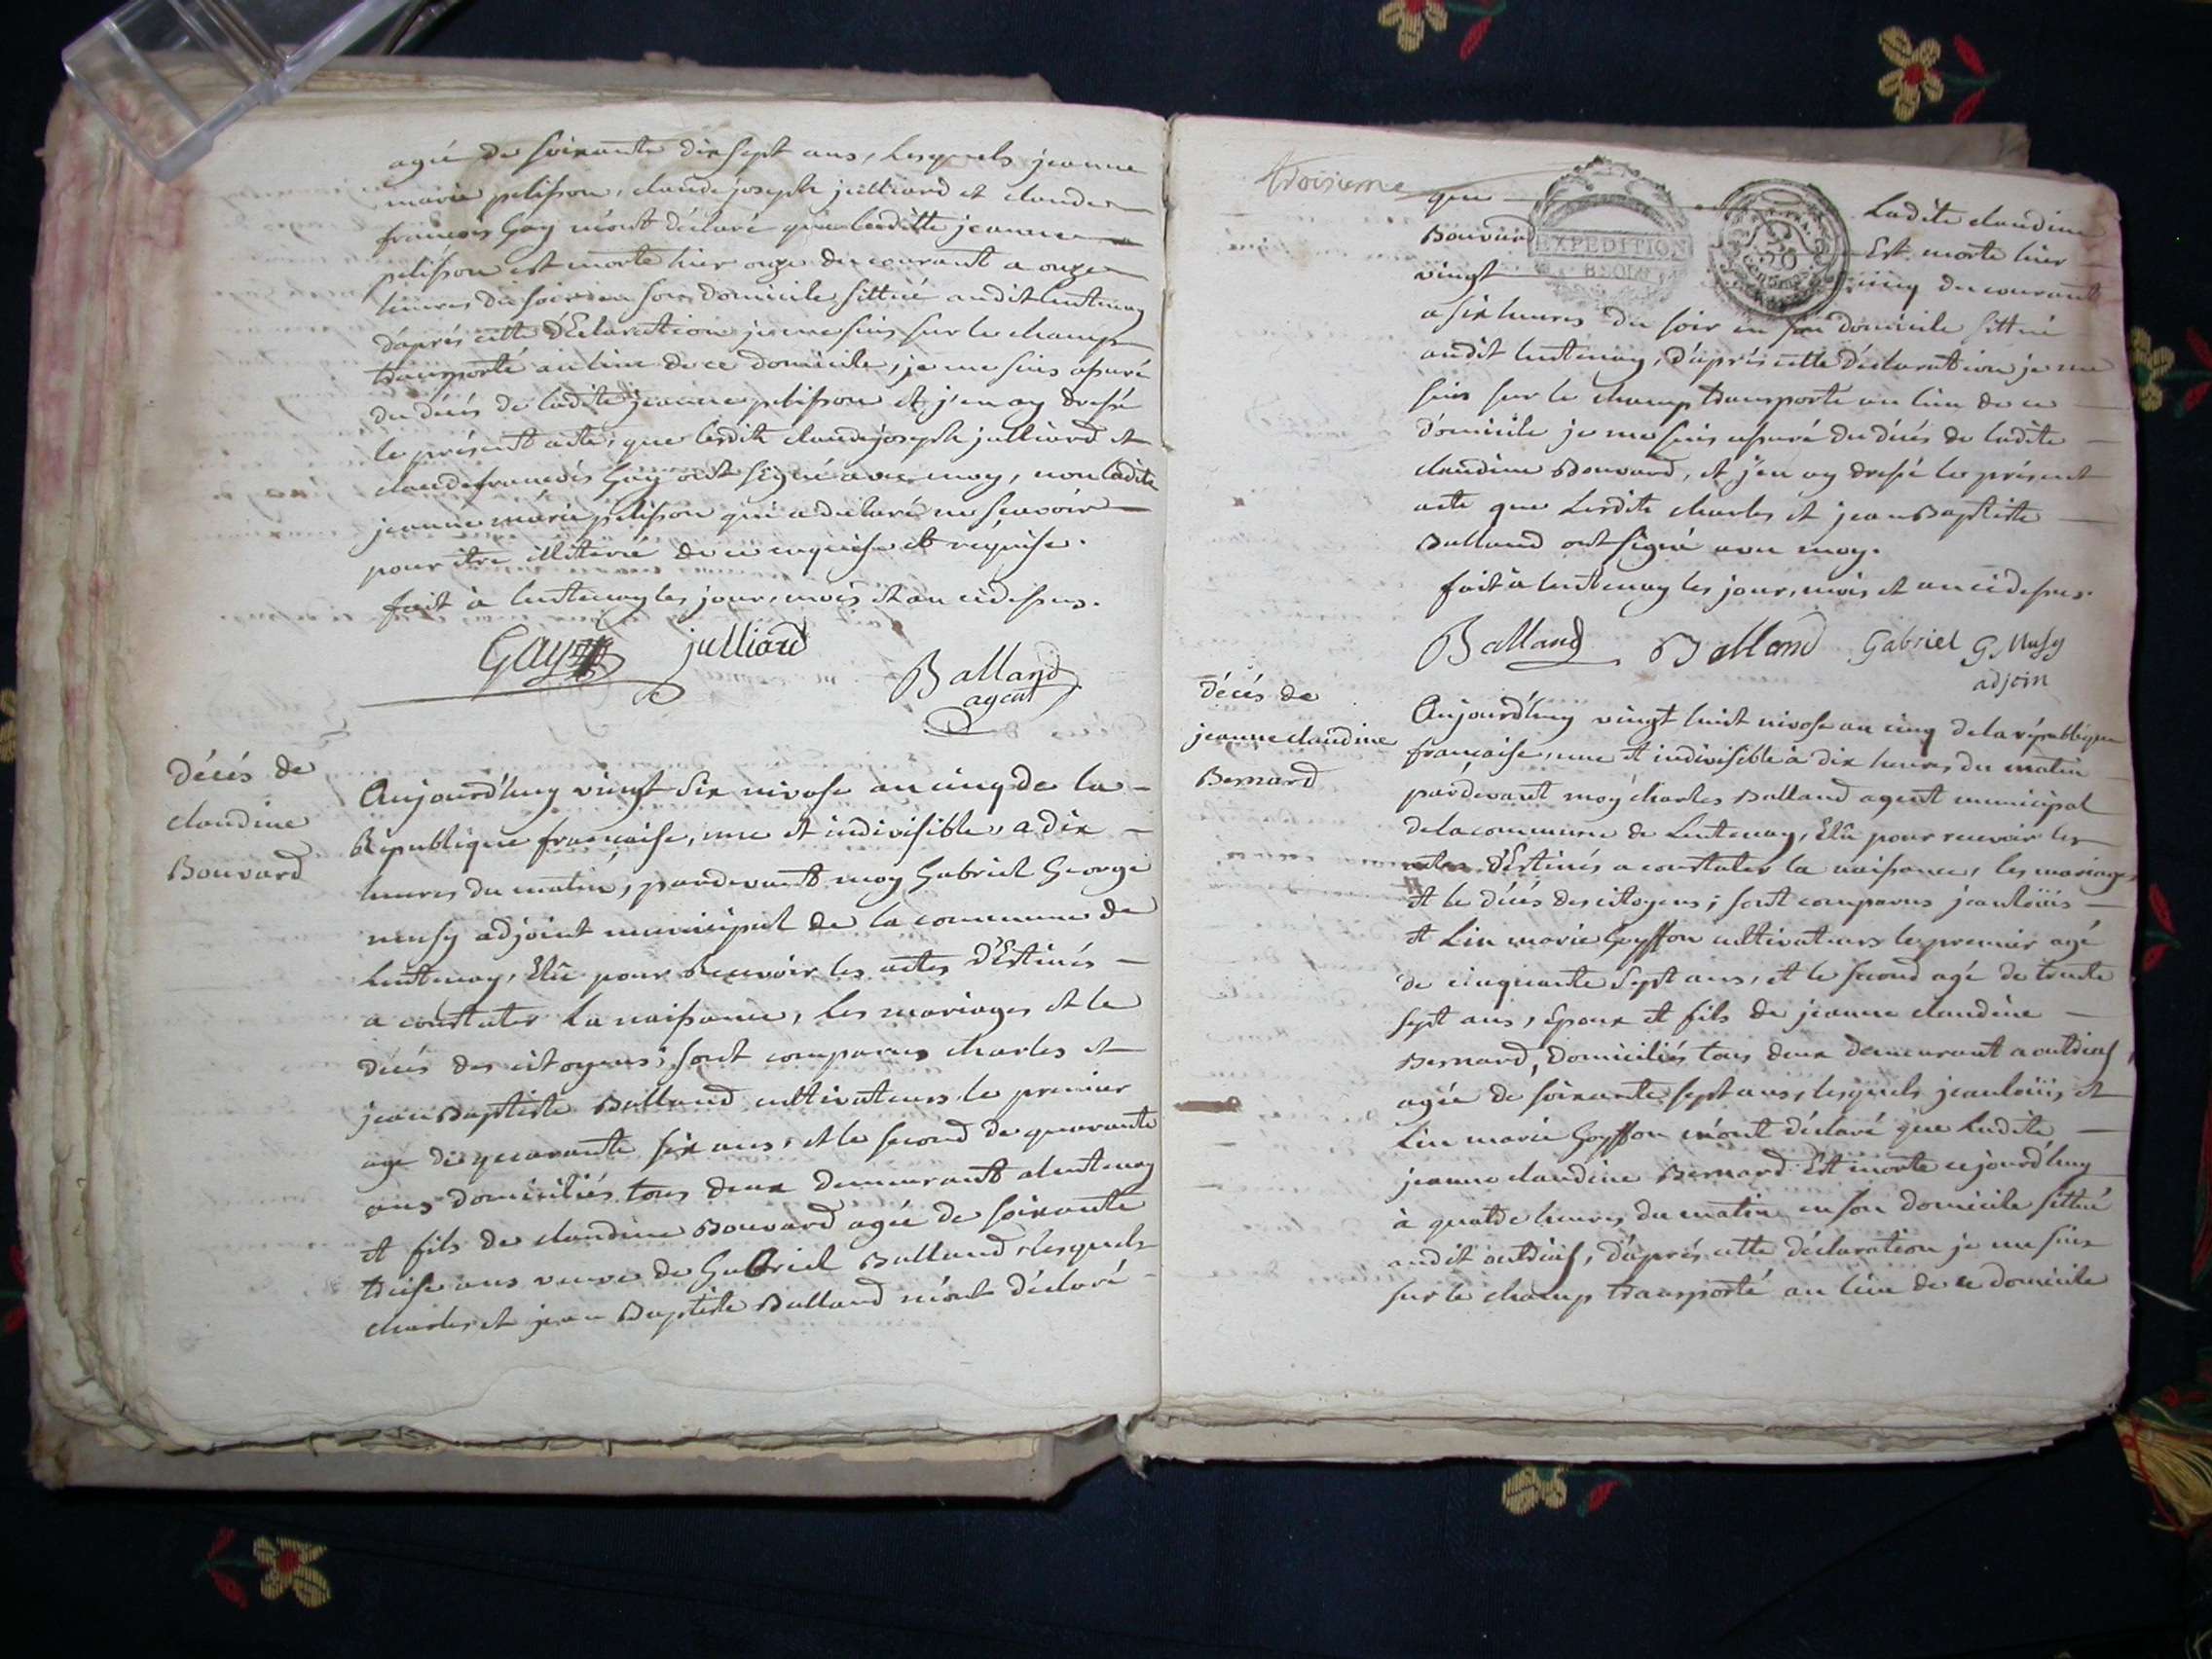 agée de soixante dix sept ans, Lesquels jeanne
marie pelisson, claude joseph julliard et claude
francois Gay m'ont déclaré que laditte jeanne
pelisson est morte hier onze du courant a onze
heures du soir en son domicile sittué audit lentenay
d'après cette déclaration je me suis sur le champ
transporté au lieu de ce domicile, je me suis assuré
du décés de ladite jeanne pelisson et j'en ay dressé
le présent acte, que lesdits claude joseph julliard et
claude francois Gay ont signé avec moy, non ladite
jeanne marie pelisson qui a déclaré ne scavoir
pour être illiterée de ce enquise et requise.
fait à lentenay les jour, mois et an cidessus.
Gay julliard
Balland
agent
Décés de
claudine
Bouvard
Aujourd'huy vingt six nivose an cinq de la
République française, une et indivisible, a dix
heures du matin, pardevant moy Gabriel George
musy adjoint municipal de la commune de
Lentenay, Elû pour Recevoir les actes d'Estinés
a constater La naissance, les mariages et le
décés des citoyens; sont comparus charles et
jean Baptiste Balland cultivateurs le premier
agé de quarante six ans, et le second de quarante
ans domiciliés tous deux demeurant a lentenay
et fils de claudine Bouvard agée de soixante
treise ans veuve de Gabriel Balland, lesquels
charles et jean Baptiste Balland m'ont déclaré
troisieme
que Ladite claudine
Bouvard Est morte hier
EXPEDITION
vingt cinq du courant
a six heures du soir en son domicile sittué
audit lentenay, d'après cette déclaration je me
suis sur le champ transporté au lieu de ce
domicile je me suis assuré du décés de ladite
claudine Bouvard, et j'en ay dressé le présent
acte que Lesdits charles et jean Baptiste
Balland ont signé avec moy.
fait à lentenay les jour, mois et an cidessus.
Balland Balland Gabriel G. Musy
adjoin
Décés de
jeanne claudine
Bernard
Aujourd'huy vingt huit nivose an cinq de la république
française, une et indivisible à dix heures du matin
pardevant moy charles Balland agent municipal
de la commune de Lentenay, Elû pour recevoir les
actes d'Estinés a constater la naissance, les mariages
et le décés des citoyens; sont comparus jean loüis
et Lin marie Goyffon cultivateurs le premier agé
de cinquante Sept ans, et le second agé de trente
sept ans, Epoux et fils de jeanne claudine
Bernard, Domiciliés tous deux demeurant a outriaf
agée de soixante sept ans, lesquels jean loüis et
Lin marie Goyffon m'ont déclaré que Ladite
jeanne claudine Bernard Est morte cejourd'huy
à quatre heures du matin en son domicile sittué
audit outriaf, d'après cette déclaration je me suis
sur le champ transporté au lieu de ce domicile